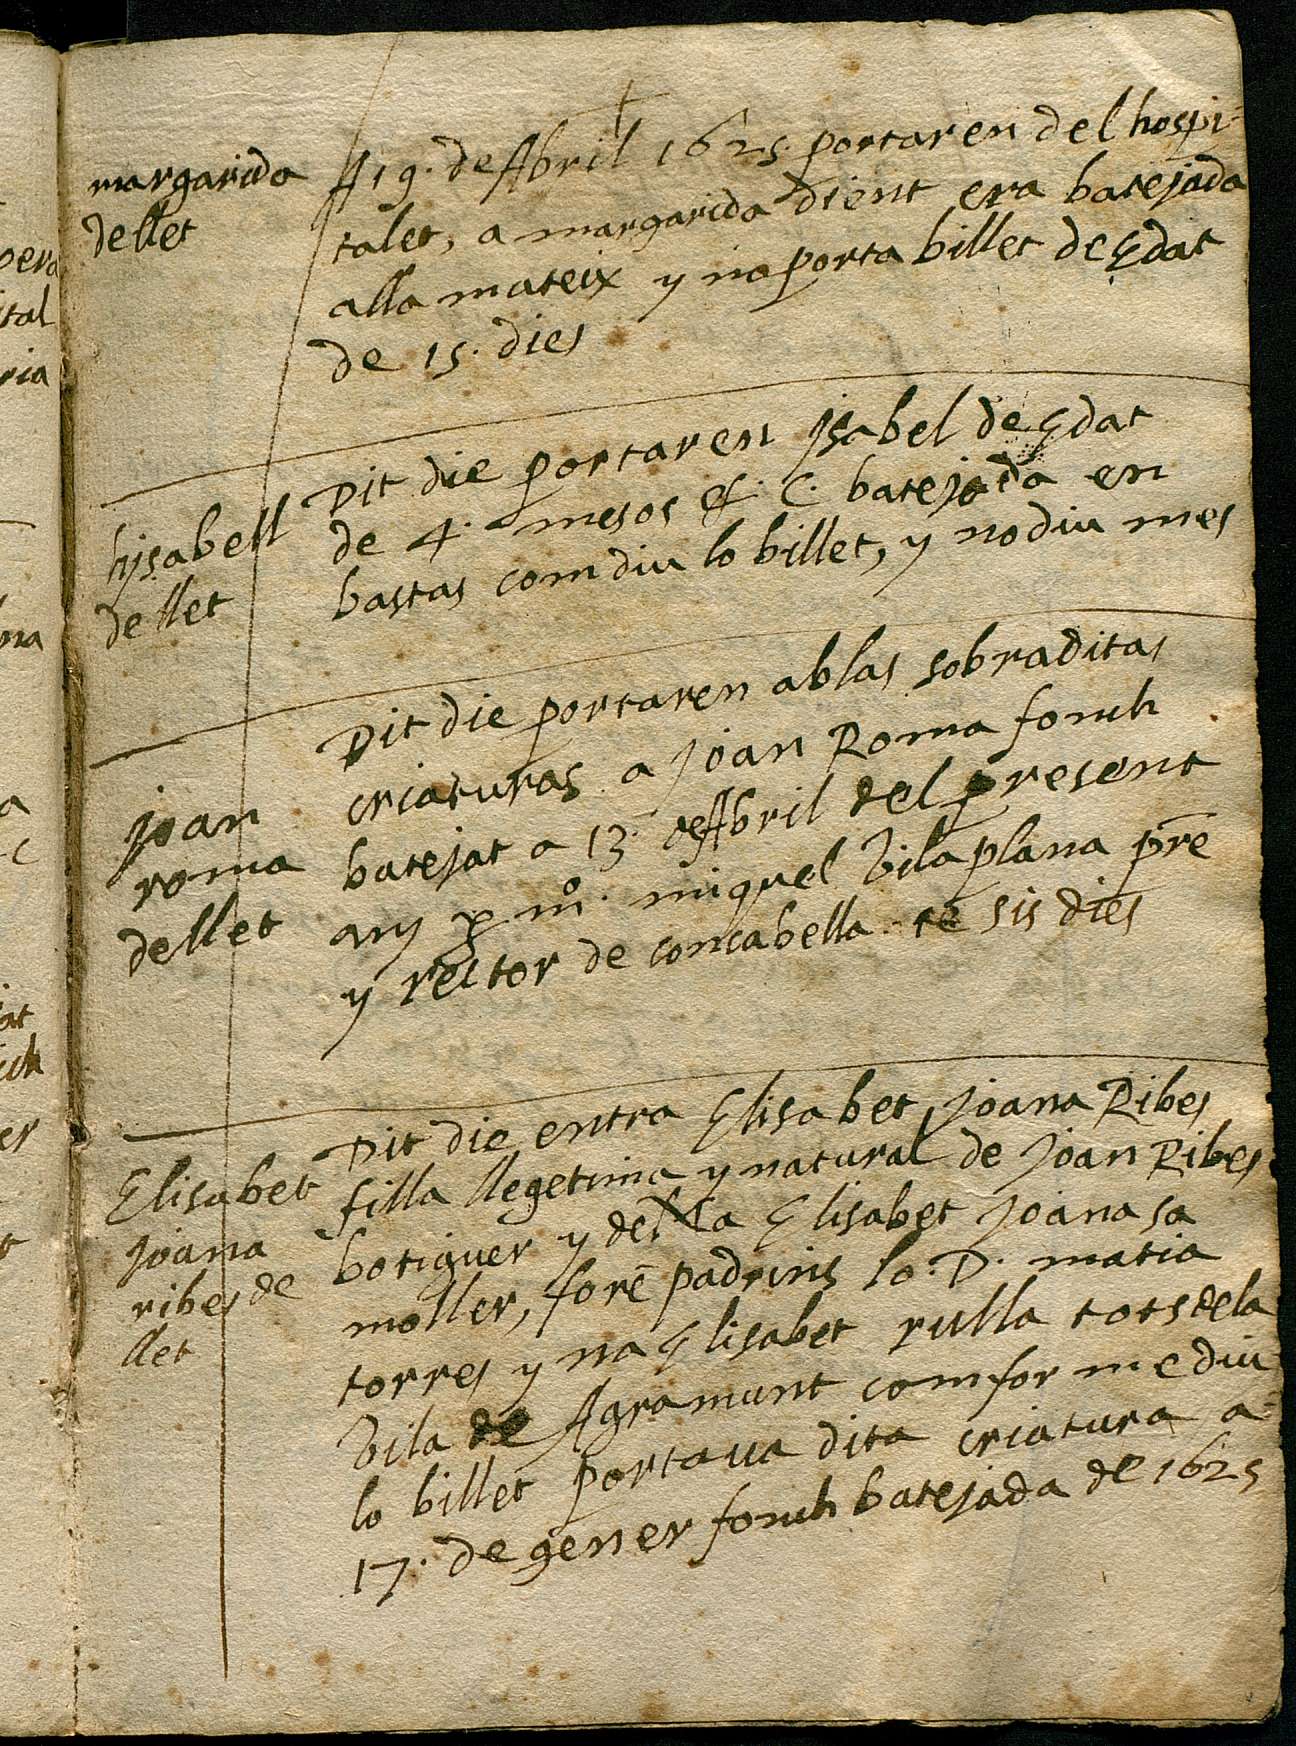 margarida
de llet
A 19. de Abril 1625. portaren del hospi-
talet, a margarida dient era batejada
alla mateix y no porta billet de Edat
de 15. dies
hisabell
de llet
Dit die portaren Isabel de Edat
de 4. mesos &. C. batejada en
bastas com diu lo billet, y no diu mes
joan
roma
de llet
Dit die portaren ab las sobraditas
criaturas a Joan Roma fonch
batejat a 13. de Abril del present
any p mº. miquel Vilaplana pre
y rector de concabella te sis dies
Elisabet
Joana
ribes de
llet
Dit die entra Elisabet Joana Ribes
filla llegetima y natural de Joan Ribes
botiguer y de Na Elisabet Joana sa
moller, forē padrins lo. D. matia
torres y na Elisabet rulla tots de la
Vila de Agramunt comforme diu
lo billet portaua dita criatura a
17. de gener fonch batejada de 1625